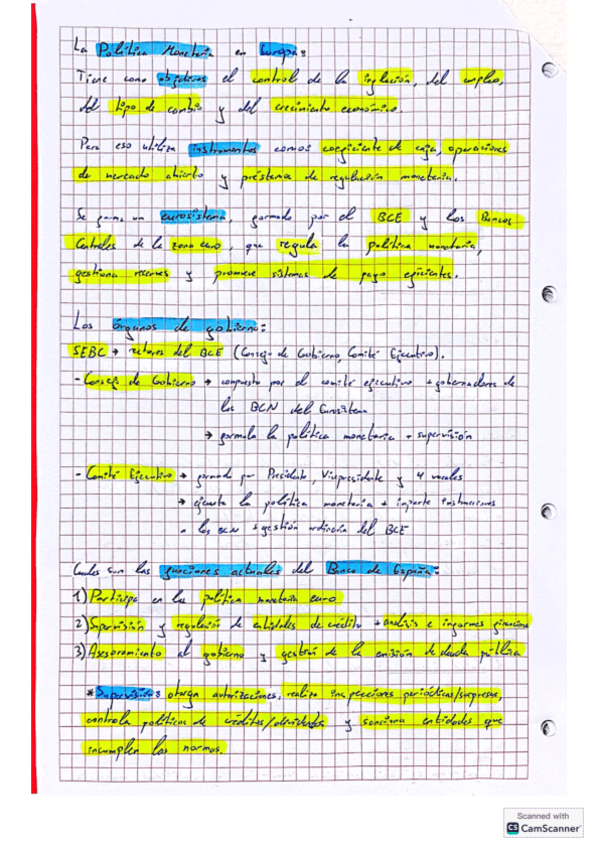 La Política Monetaria en Europa:
Tiene como objetivos el control de la inflación, del empleo,
del tipo de cambio y del crecimiento económico.
Para eso utiliza instrumentos como: coeficiente de caja, operaciones
de mercado abierto y préstamos de regulación monetaria.
Se forma un eurosistema, formado por el BCE y los Bancos
Centrales de la zona euro, que regula la política monetaria,
gestiona reservas y promueve sistemas de pago eficientes.
Los órganos de gobierno:
SEBC → rectores del BCE (Consejo de Gobierno, Comité Ejecutivo).
- Consejo de Gobierno → compuesto por el comité ejecutivo + gobernadores de
los BCN del Eurosistema
→ formula la política monetaria + supervisión
- Comité Ejecutivo → formado por Presidente, Vicepresidente y 4 vocales
→ ejecuta la política monetaria + imparte instrucciones
a los BCN + gestión ordinaria del BCE
Cuales son las funciones actuales del Banco de España:
1) Participa en la política monetaria euro
2) Supervisión y regulación de entidades de crédito + análisis e informes financieros
3) Asesoramiento al gobierno y gestión de la emisión de deuda pública
* Supervisión: otorga autorizaciones, realiza inspecciones periódicas/sorpresas,
controla políticas de créditos/dividendos y sanciona entidades que
incumplen las normas.
Scanned with
CS CamScanner